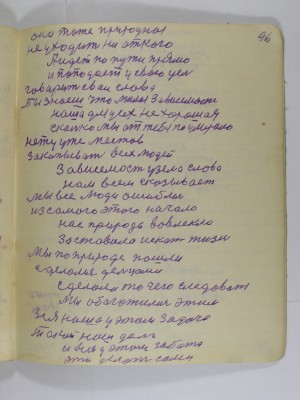 96
она тоже природная
не уходит ни от кого
А идет по пути прямо
и попадает у свою цел
говорит свои слова
Ты знаеш что милая Зависимост
наша для усех не хорошая
сколко мы от тебя поумирало
нету уже местов
Закапыват всех людей
Зависимост узела слово
нам всем сказывает
мы все люди ошибли
из самого этого начало
нас природа вовлекло
Заставило искат жизни
Мы по природе пошли
сделалис делцами
сделали то чего следоват
Мы обогатилис этим
Вся наша у этом Задача
Такий наш долг
и вся у этом забота
это делат сами